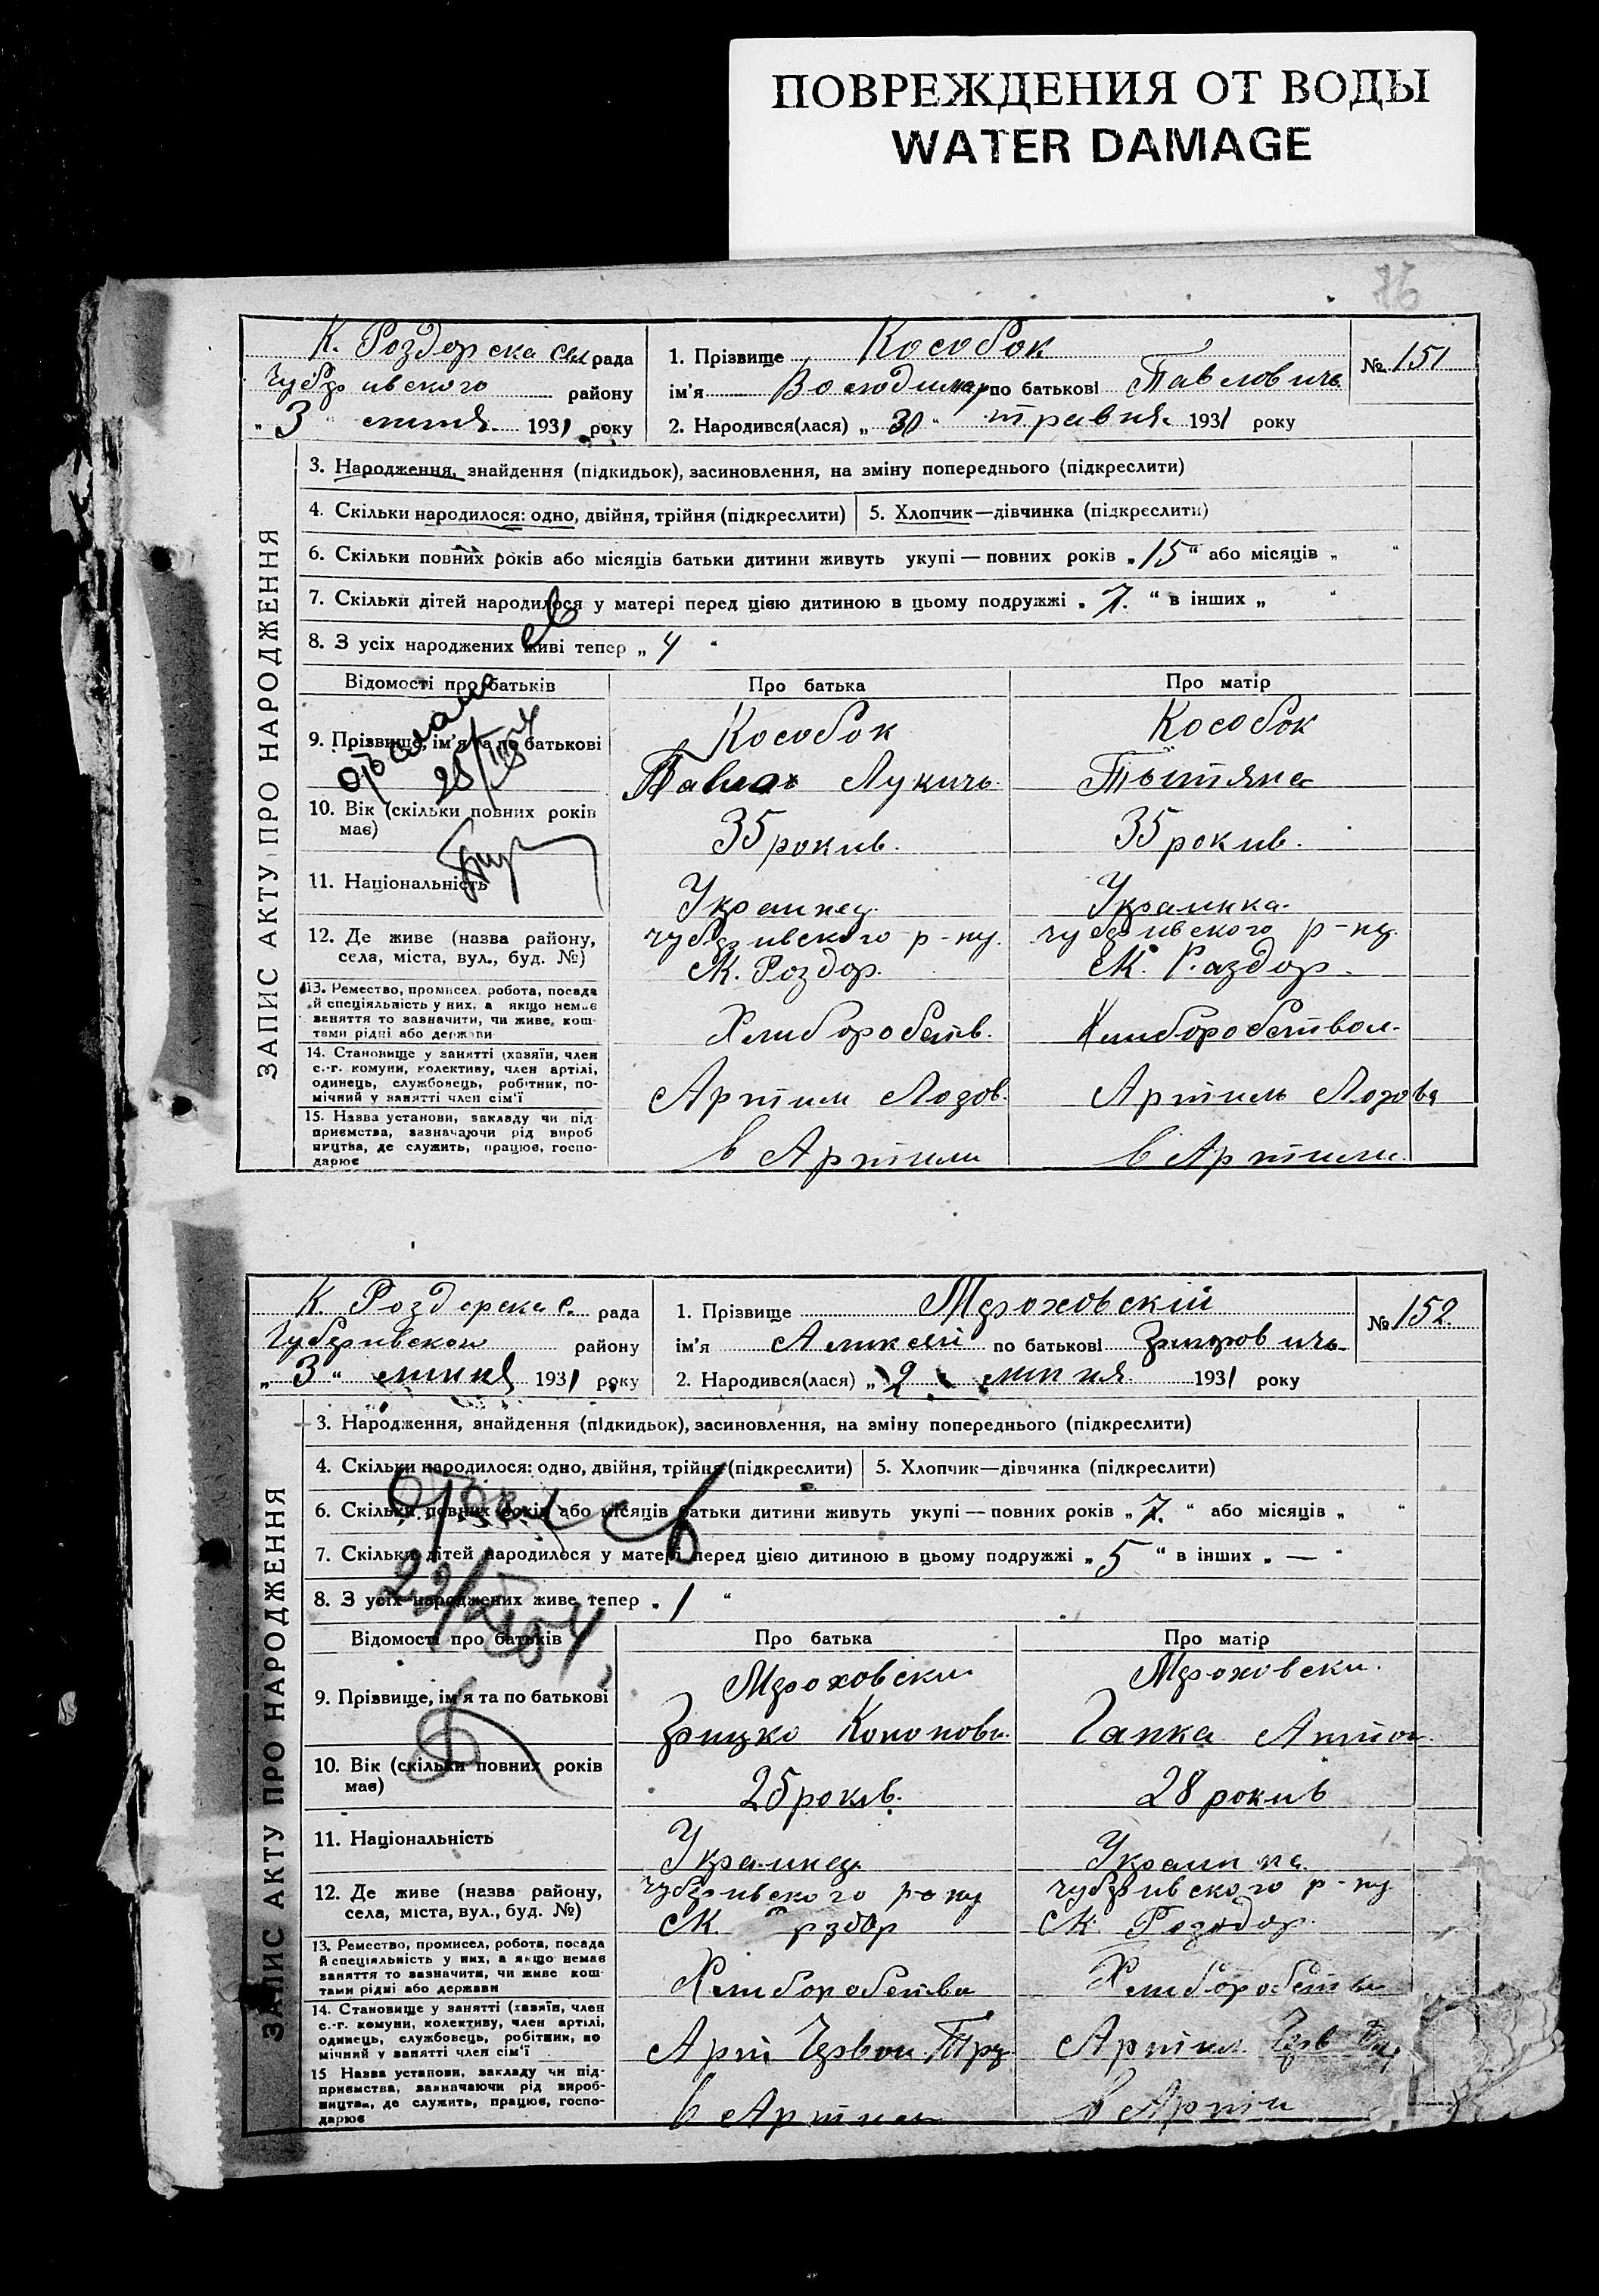 ПОВРЕЖДЕНИЯ ОТ ВОДЫ
WATER DAMAGE
76
К. Роздорска сел рада
Чубаривского району
„3“ липня 1931 року
1. Прізвище Кособок
ім'я Володимир по батькові Павловичь
2. Народився(лася) „30“ травня 1931 року
№ 151
ЗАПИС АКТУ ПРО НАРОДЖЕННЯ
3. Народження, знайдення (підкидьок), засиновлення, на зміну попереднього (підкреслити)
4. Скільки народилося: одно, двійня, трійня (підкреслити)
5. Хлопчик—дівчинка (підкреслити)
6. Скільки повних років або місяців батьки дитини живуть укупі — повних років „15“ або місяців „ “
7. Скільки дітей народилося у матері перед цією дитиною в цьому подружжі „7.“ в інших „ “
8. З усіх народжених живі тепер „4“
Відомості про батьків
Про батька
Про матір
9. Прізвище, ім'я та по батькові
Кособок
Лукичь
Кособок
Тытяна
10. Вік (скільки повних років має)
35 рокив.
35 рокив.
11. Національність
Украинец.
Украинка.
12. Де живе (назва району, села, міста, вул., буд. №)
Чубаривского р-ну.
М. Роздор.
Чубаривского р-ну.
М. Раздор.
13. Ремество, промисел, робота, посада
й спеціяльність у них, а якщо немає
заняття то зазначити, чи живе, кош-
тами рідні або держави
Хлиборобств.
Хлиборобством.
14. Становище у занятті (хазяїн, член
с.-г. комуни, колективу, член артілі,
одинець, службовець, робітник, по-
мічний у занятті член сім'ї
Артили Лозов.
Артиль Лозова
15. Назва установи, закладу чи під-
приємства, зазначаючи рід вироб
ництва, де служить, працює, госпо-
дарює
в Артили
в Артили.
К. Роздорска с. рада
Чубаривскои району
„3“ липня 1931 року
1. Прізвище Мроховский
ім'я Аликсий по батькові Грицовичь
2. Народився(лася) „2“ липня 1931 року
№ 152.
ЗАПИС АКТУ ПРО НАРОДЖЕННЯ
3. Народження, знайдення (підкидьок), засиновлення, на зміну попереднього (підкреслити)
4. Скільки народилося: одно, двійня, трійня (підкреслити)
5. Хлопчик—дівчинка (підкреслити)
6. Скільки повних років або місяців батьки дитини живуть укупі — повних років „7.“ або місяців „ “
7. Скільки дітей народилося у матері перед цією дитиною в цьому подружжі „5“ в інших „—“
8. З усіх народжених живе тепер „1“
Відомості про батьків
Про батька
Про матір
9. Прізвище, ім'я та по батькові
Мроховски
Грицко Кононови.
Мроховски.
Гапка Антон.
10. Вік (скільки повних років має)
25 рокив.
28 рокив
11. Національність
Украинец.
12. Де живе (назва району, села, міста, вул., буд. №)
Чубаривского
М.
Чубаривского р-ну
М. Роздор.
13. Ремество, промисел, робота, посада
й спеціяльність у них, а якщо немає
заняття то зазначити, чи живе кош-
тами рідні або держави
Хлиборобства
Хлиборобства
14. Становище у занятті (хазяїн, член
с.-г. комуни, колективу, член артілі,
одинець, службовець, робітник, по
мічний у занятті член сім'ї
Арт Червон. Труд
Артил. Черв
15 Назва установи, закладу чи під-
приємства, зазначаючи рід вироб-
ництва, де служить, працює, госпо-
дарює
в Артили
в Арти